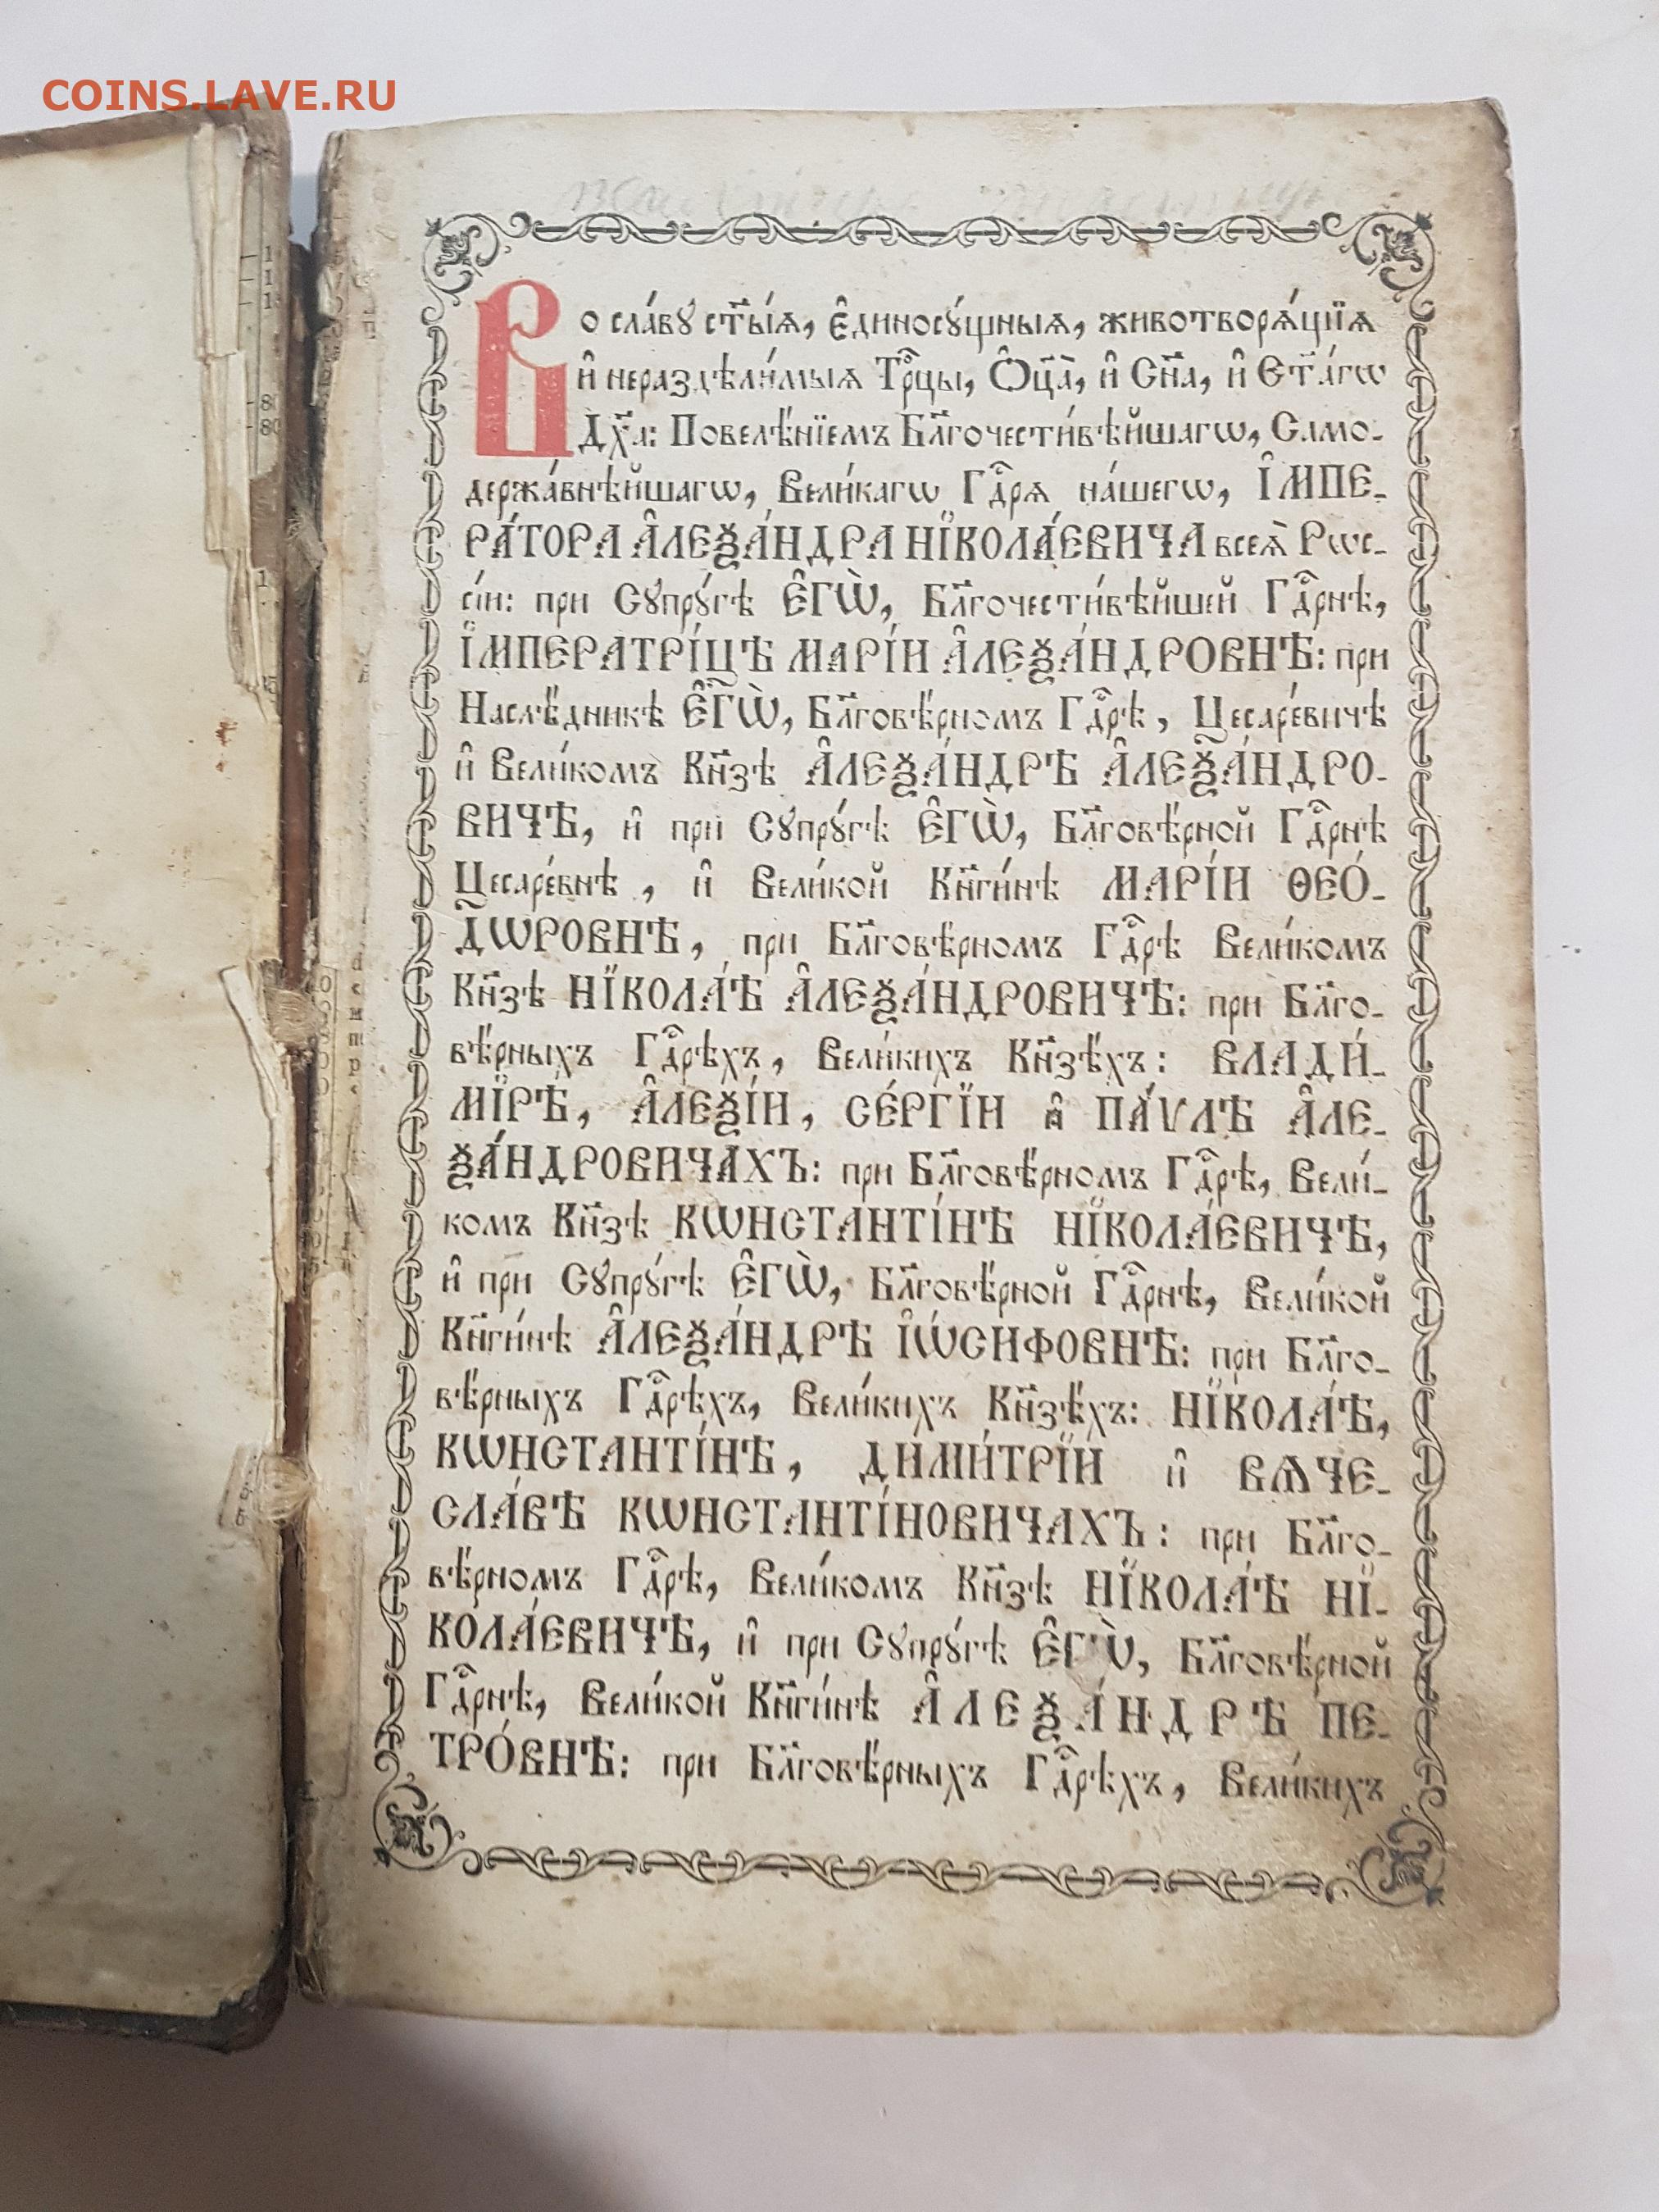 COINS.LAVE.RU
Во сла́вꙋ ст҃ы́ѧ, є҆диносꙋ́щныѧ, животворѧ́щїѧ
и҆ нераздѣли́мыѧ Трⷪ҇цы, Ѻ҆ц҃а̀, и҆ Сн҃а, и҆ Ст҃а́гѡ
Дх҃а: Повелѣ́нїемъ Бл҃гочести́вѣйшагѡ, Само-
держа́внѣйшагѡ, Вели́кагѡ Гдⷭ҇рѧ на́шегѡ, І҆МПЕ-
РА́ТОРА А҆ЛЕѮА́НДРА НЇКОЛА́ЕВИЧА всеѧ̀ Рѡс-
сі́и: при Сꙋпрꙋ́гѣ Є҆ГѠ̀, Бл҃гочести́вѣйшей Гдⷭ҇рнѣ,
І҆МПЕРАТРІ́ЦѢ МАРІ́И А҆ЛЕѮА́НДРОВНѢ: при
Наслѣ́дникѣ Є҆ГѠ̀, Бл҃говѣ́рномъ Гдⷭ҇рѣ, Цесаре́вичѣ
и҆ Вели́комъ Кн҃зѣ А҆ЛЕѮА́НДРѢ А҆ЛЕѮА́НДРО-
ВИЧѢ, и҆ при Сꙋпрꙋ́гѣ Є҆ГѠ̀, Бл҃говѣ́рной Гдⷭ҇рнѣ
Цесаре́внѣ, и҆ Вели́кой Кн҃ги́нѣ МАРІ́И ѲЕО́-
ДѠРОВНѢ, при Бл҃говѣ́рномъ Гдⷭ҇рѣ Вели́комъ
Кн҃зѣ НЇКОЛА́Ѣ А҆ЛЕѮА́НДРОВИЧѢ: при Бл҃го-
вѣ́рныхъ Гдⷭ҇рѣхъ, Вели́кихъ Кн҃зѣ́хъ: ВЛАДИ́-
МЇРѢ, А҆ЛЕѮІ́И, СЕ́РГЇИ и҆ ПА́ѴЛѢ А҆ЛЕ-
ѮА́НДРОВИЧАХЪ: при Бл҃говѣ́рномъ Гдⷭ҇рѣ, Вели́-
комъ Кн҃зѣ КѠНСТАНТІ́НѢ НЇКОЛА́ЕВИЧѢ,
и҆ при Сꙋпрꙋ́гѣ Є҆ГѠ̀, Бл҃говѣ́рной Гдⷭ҇рнѣ, Вели́кой
Кн҃ги́нѣ А҆ЛЕѮА́НДРѢ І҆Ѡ́СИФОВНѢ: при Бл҃го-
вѣ́рныхъ Гдⷭ҇рѣхъ, Вели́кихъ Кн҃зѣ́хъ: НЇКОЛА́Ѣ,
КѠНСТАНТІ́НѢ, ДИМИ́ТРЇИ и҆ ВѦЧЕ-
СЛА́ВѢ КѠНСТАНТІ́НОВИЧАХЪ: при Бл҃го-
вѣ́рномъ Гдⷭ҇рѣ, Вели́комъ Кн҃зѣ НЇКОЛА́Ѣ НЇ-
КОЛА́ЕВИЧѢ, и҆ при Сꙋпрꙋ́гѣ Є҆ГѠ̀, Бл҃говѣ́рной
Гдⷭ҇рнѣ, Вели́кой Кн҃ги́нѣ А҆ЛЕѮА́НДРѢ ПЕ-
ТРО́ВНѢ: при Бл҃говѣ́рныхъ Гдⷭ҇рѣхъ, Вели́кихъ